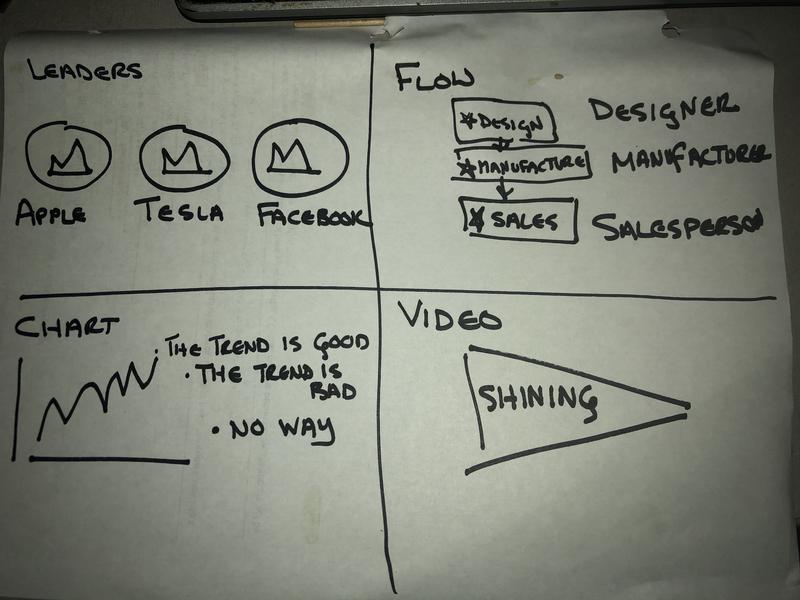 LEADERS
APPLE
TESLA
FACEBOOK
FLOW
* DESIGN
DESIGNER
* MANUFACTURE
MANUFACTURER
* SALES
SALESPERSON
CHART
• THE TREND IS GOOD
• THE TREND IS
BAD
• NO WAY
VIDEO
SHINING